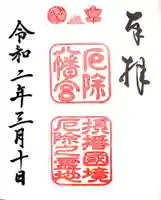 奉拝
厄除
八幡宮
摂播国境
厄除之霊地
令和二年三月十日